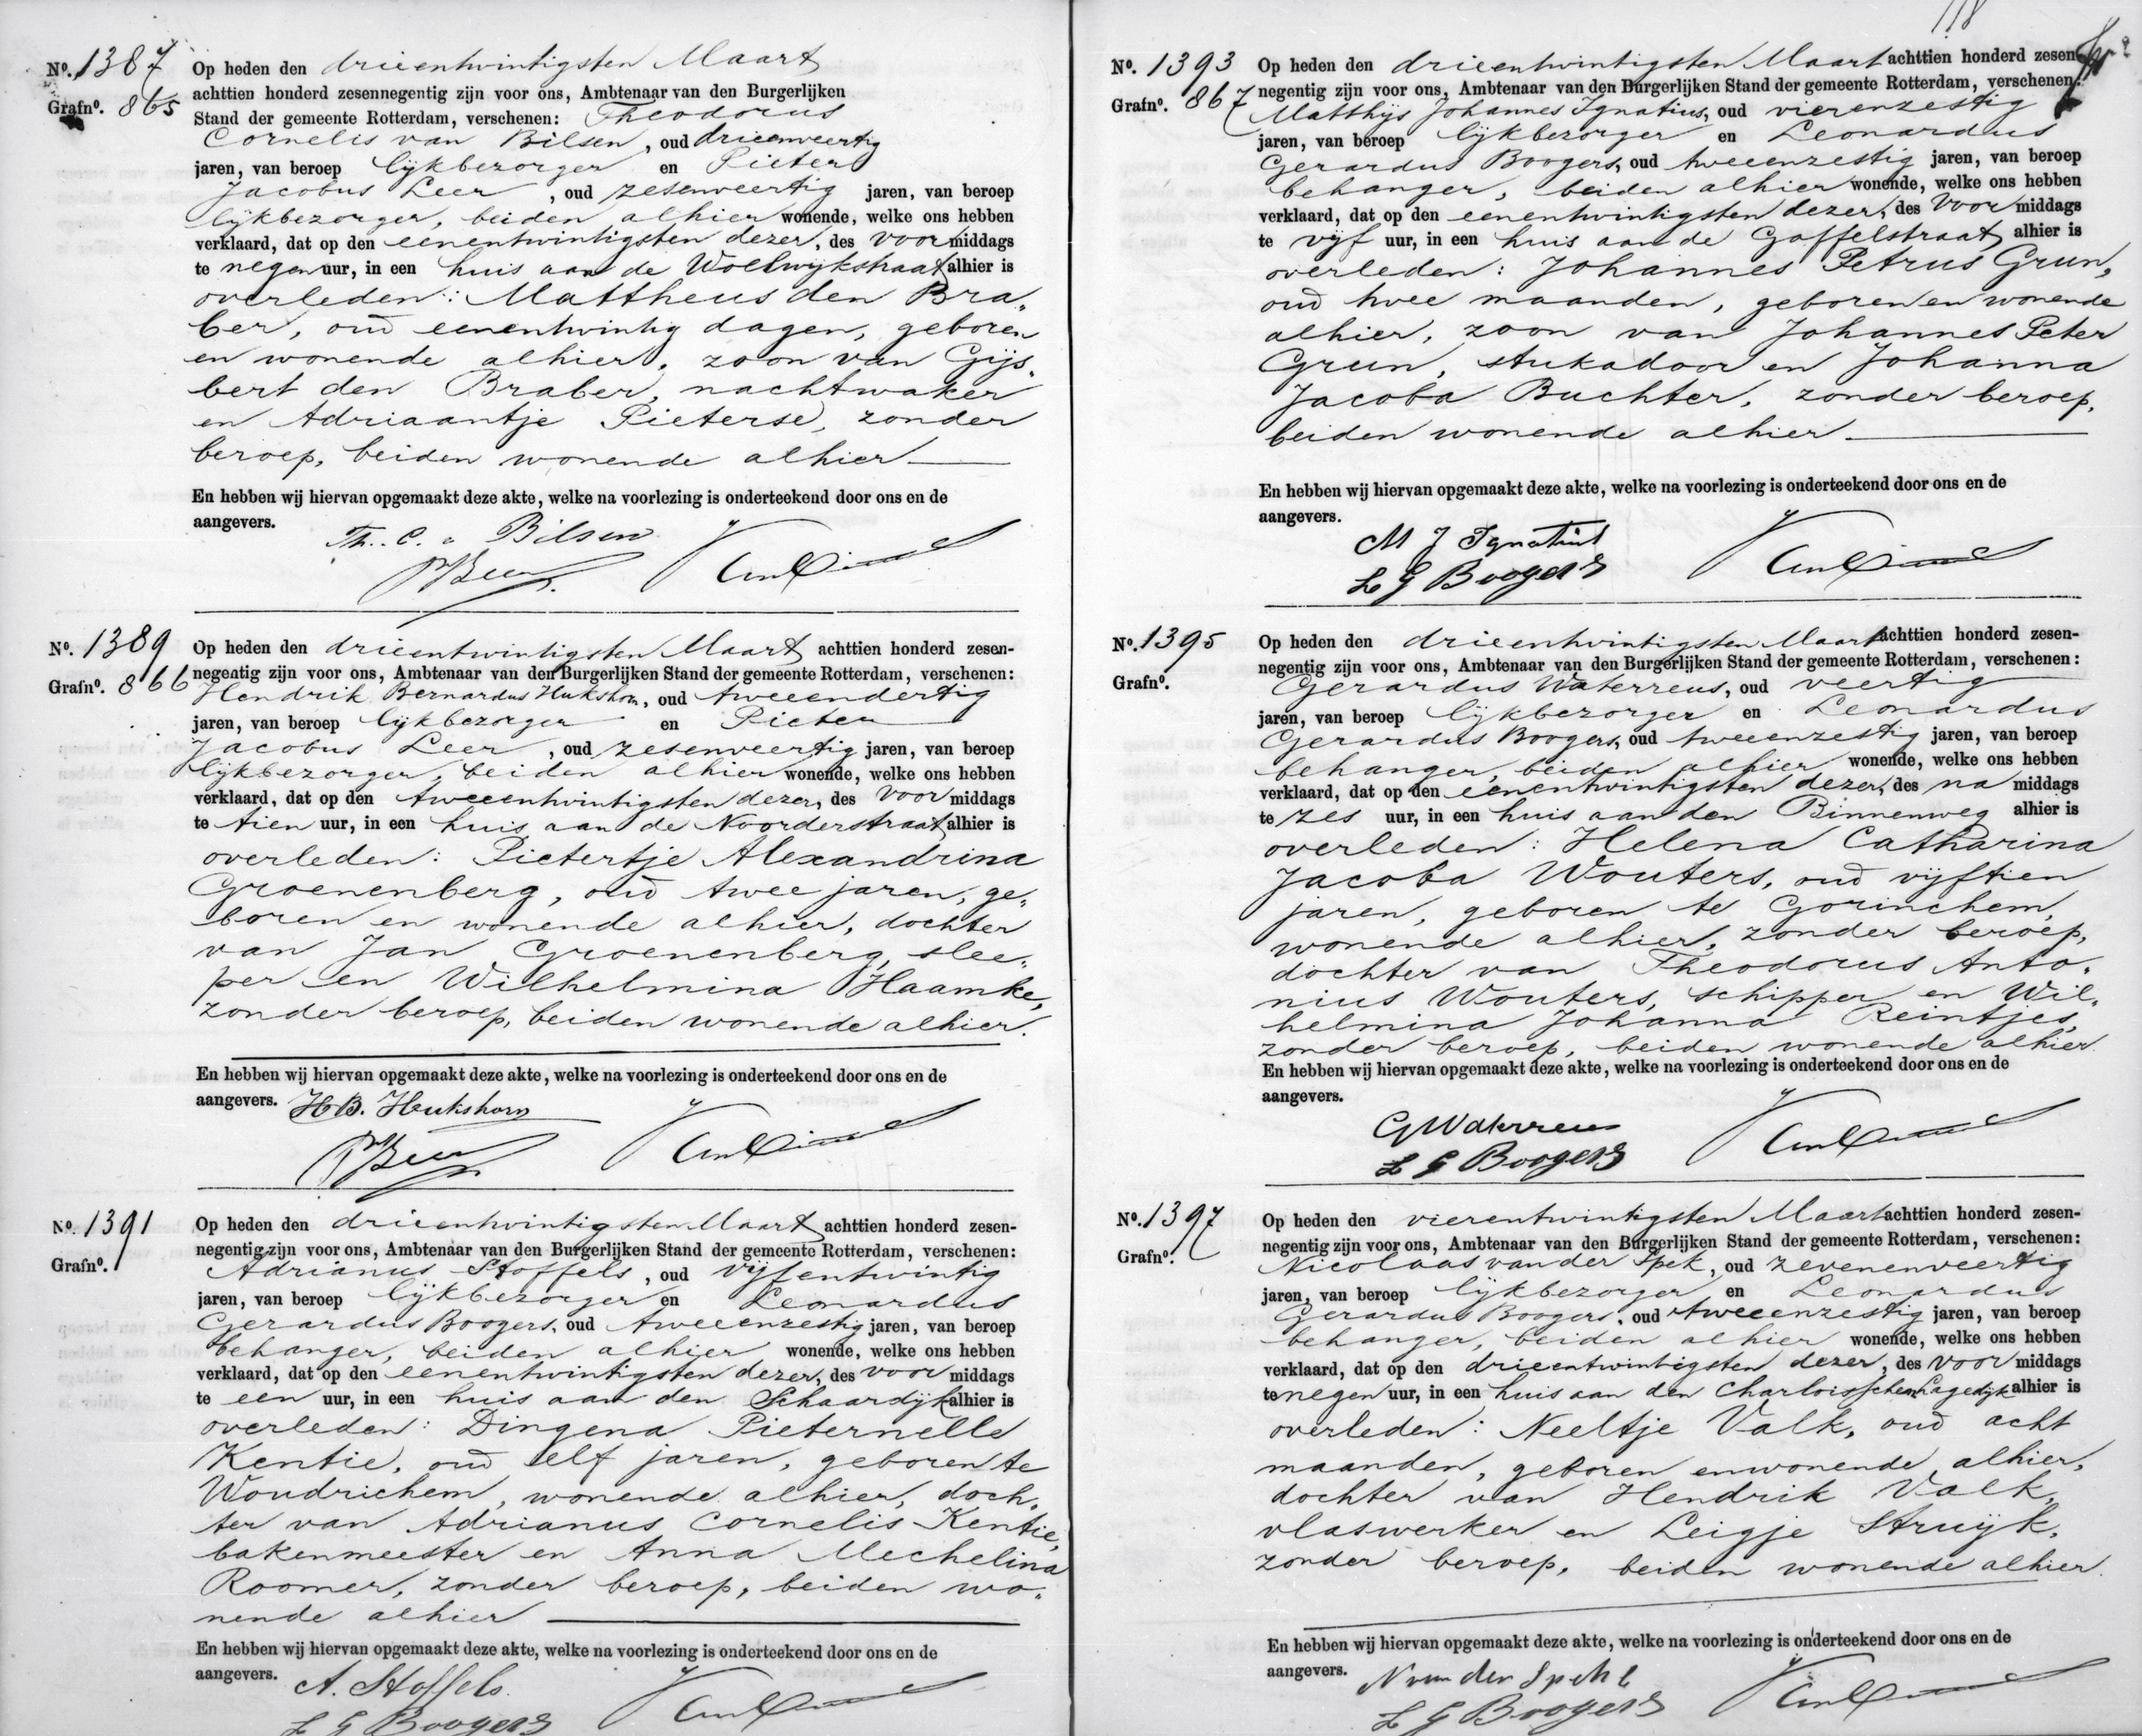 No. 1387
Grafno. 865
Op heden den drieentwintigsten Maart
achttien honderd zesennegentig zijn voor ons, Ambtenaar van den Burgerlijken
Stand der gemeente Rotterdam, verschenen: Theodorus
Cornelis van Bilsen, oud drieenveertig
jaren, van beroep lijkbezorger en Pieter
Jacobus Leer, oud zesenveertig jaren, van beroep
lijkbezorger, beiden alhier wonende, welke ons hebben
verklaard, dat op den eenentwintigsten dezer, des voormiddags
te negen uur, in een huis aan de Woelwijkstraat alhier is
overleden: Mattheus den Bra„
ber, oud eenentwintig dagen, geboren
en wonende alhier, zoon van Gijs„
bert den Braber, nachtwaker
en Adriaantje Pieterse, zonder
beroep, beiden wonende alhier
En hebben wij hiervan opgemaakt deze akte, welke na voorlezing is onderteekend door ons en de
aangevers.
Th. C. v Bilsen
No. 1389
Grafno. 866
Op heden den drieentwintigsten Maart achttien honderd zesen-
negentig zijn voor ons, Ambtenaar van den Burgerlijken Stand der gemeente Rotterdam, verschenen:
Hendrik Bernardus Hukshorn, oud tweeendertig
jaren, van beroep lijkbezorger en Pieter
Jacobus Leer, oud zesenveertig jaren, van beroep
lijkbezorger, beiden alhier wonende, welke ons hebben
verklaard, dat op den tweeentwintigsten dezer, des voormiddags
te tien uur, in een huis aan de Noorderstraat alhier is
overleden: Pietertje Alexandrina
Groenenberg, oud twee jaren, ge„
boren en wonende alhier, dochter
van Jan Groenenberg, slee„
per en Wilhelmina Haamke,
zonder beroep, beiden wonende alhier.
En hebben wij hiervan opgemaakt deze akte, welke na voorlezing is onderteekend door ons en de
aangevers. HB. Hukshorn
No. 1391
Grafno.
Op heden den drieentwintigsten Maart achttien honderd zesen-
negentig zijn voor ons, Ambtenaar van den Burgerlijken Stand der gemeente Rotterdam, verschenen:
Adrianus Stoffels, oud vijfentwintig
jaren, van beroep lijkbezorger en Leonardus
Gerardus Boogers, oud tweeenzestig jaren, van beroep
behanger, beiden alhier wonende, welke ons hebben
verklaard, dat op den eenentwintigsten dezer, des voormiddags
te een uur, in een huis aan den Schaardijk alhier is
overleden: Dingena Pieternelle
Kentie, oud elf jaren, geboren te
Woudrichem, wonende alhier, doch„
ter van Adrianus Cornelis Kentie,
bakenmeester en Anna Mechelina
Roomer, zonder beroep, beiden wo„
nende alhier
En hebben wij hiervan opgemaakt deze akte, welke na voorlezing is onderteekend door ons en de
aangevers. A. Stoffels.
L G Boogers
118
No. 1393
Grafno. 867
Op heden den drieentwintigsten Maart achttien honderd zesen-
negentig zijn voor ons, Ambtenaar van den Burgerlijken Stand der gemeente Rotterdam, verschenen:
Matthijs Johannes Ignatius, oud vierenzestig
jaren, van beroep lijkbezorger en Leonardus
Gerardus Boogers, oud tweeenzestig jaren, van beroep
behanger, beiden alhier wonende, welke ons hebben
verklaard, dat op den eenentwintigsten dezer, des voormiddags
te vijf uur, in een huis aan de Gaffelstraat alhier is
overleden: Johannes Petrus Grun,
oud twee maanden, geboren en wonende
alhier, zoon van Johannes Peter
Grun, stukadoor en Johanna
Jacoba Buchter, zonder beroep,
beiden wonende alhier
En hebben wij hiervan opgemaakt deze akte, welke na voorlezing is onderteekend door ons en de
aangevers.
M J Ignatius
L G Boogers
No. 1395
Grafno.
Op heden den drieentwintigsten Maart achttien honderd zesen-
negentig zijn voor ons, Ambtenaar van den Burgerlijken Stand der gemeente Rotterdam, verschenen:
Gerardus Waterreus, oud veertig
jaren, van beroep lijkbezorger en Leonardus
Gerardus Boogers, oud tweeenzestig jaren, van beroep
behanger, beiden alhier wonende, welke ons hebben
verklaard, dat op den eenentwintigsten dezer, des na middags
te zes uur, in een huis aan den Binnenweg alhier is
overleden: Helena Catharina
Jacoba Wouters, oud vijftien
jaren, geboren te Gorinchem,
wonende alhier, zonder beroep,
dochter van Theodorus Anto„
nius Wouters, schipper en Wil„
helmina Johanna Reintjes,
zonder beroep, beiden wonende alhier.
En hebben wij hiervan opgemaakt deze akte, welke na voorlezing is onderteekend door ons en de
aangevers.
G Waterreus
L G Boogers
No. 1397
Grafno.
Op heden den vierentwintigsten Maart achttien honderd zesen-
negentig zijn voor ons, Ambtenaar van den Burgerlijken Stand der gemeente Rotterdam, verschenen:
Nicolaas van der Spek, oud zevenenveertig
jaren, van beroep lijkbezorger en Leonardus
Gerardus Boogers, oud tweeenzestig jaren, van beroep
behanger, beiden alhier wonende, welke ons hebben
verklaard, dat op den drieentwintigsten dezer, des voormiddags
te negen uur, in een huis aan den Charloisschen Lagedijk alhier is
overleden: Neeltje Valk, oud acht
maanden, geboren en wonende alhier,
dochter van Hendrik Valk,
vlaswerker en Leigje Struijk,
zonder beroep, beiden wonende alhier.
En hebben wij hiervan opgemaakt deze akte, welke na voorlezing is onderteekend door ons en de
aangevers.
N van der Spek
L G Boogers